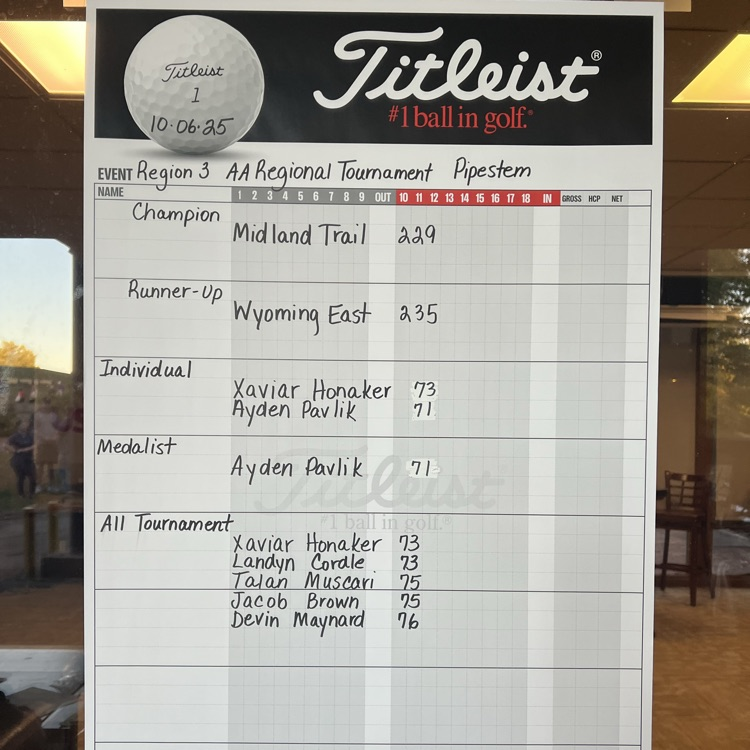 Titleist
1
10·06·25
Titleist®
#1 ball in golf.®
EVENT Region 3 AA Regional Tournament Pipestem
NAME 1 2 3 4 5 6 7 8 9 OUT 10 11 12 13 14 15 16 17 18 IN GROSS HCP NET
Champion
Midland Trail 229
Runner-Up
Wyoming East 235
Individual
Xaviar Honaker 73
Ayden Pavlik 71
Medalist
Ayden Pavlik 71
Titleist
#1 ball in golf.®
All Tournament
Xaviar Honaker 73
Landyn Cordle 73
Talan Muscari 75
Jacob Brown 75
Devin Maynard 76